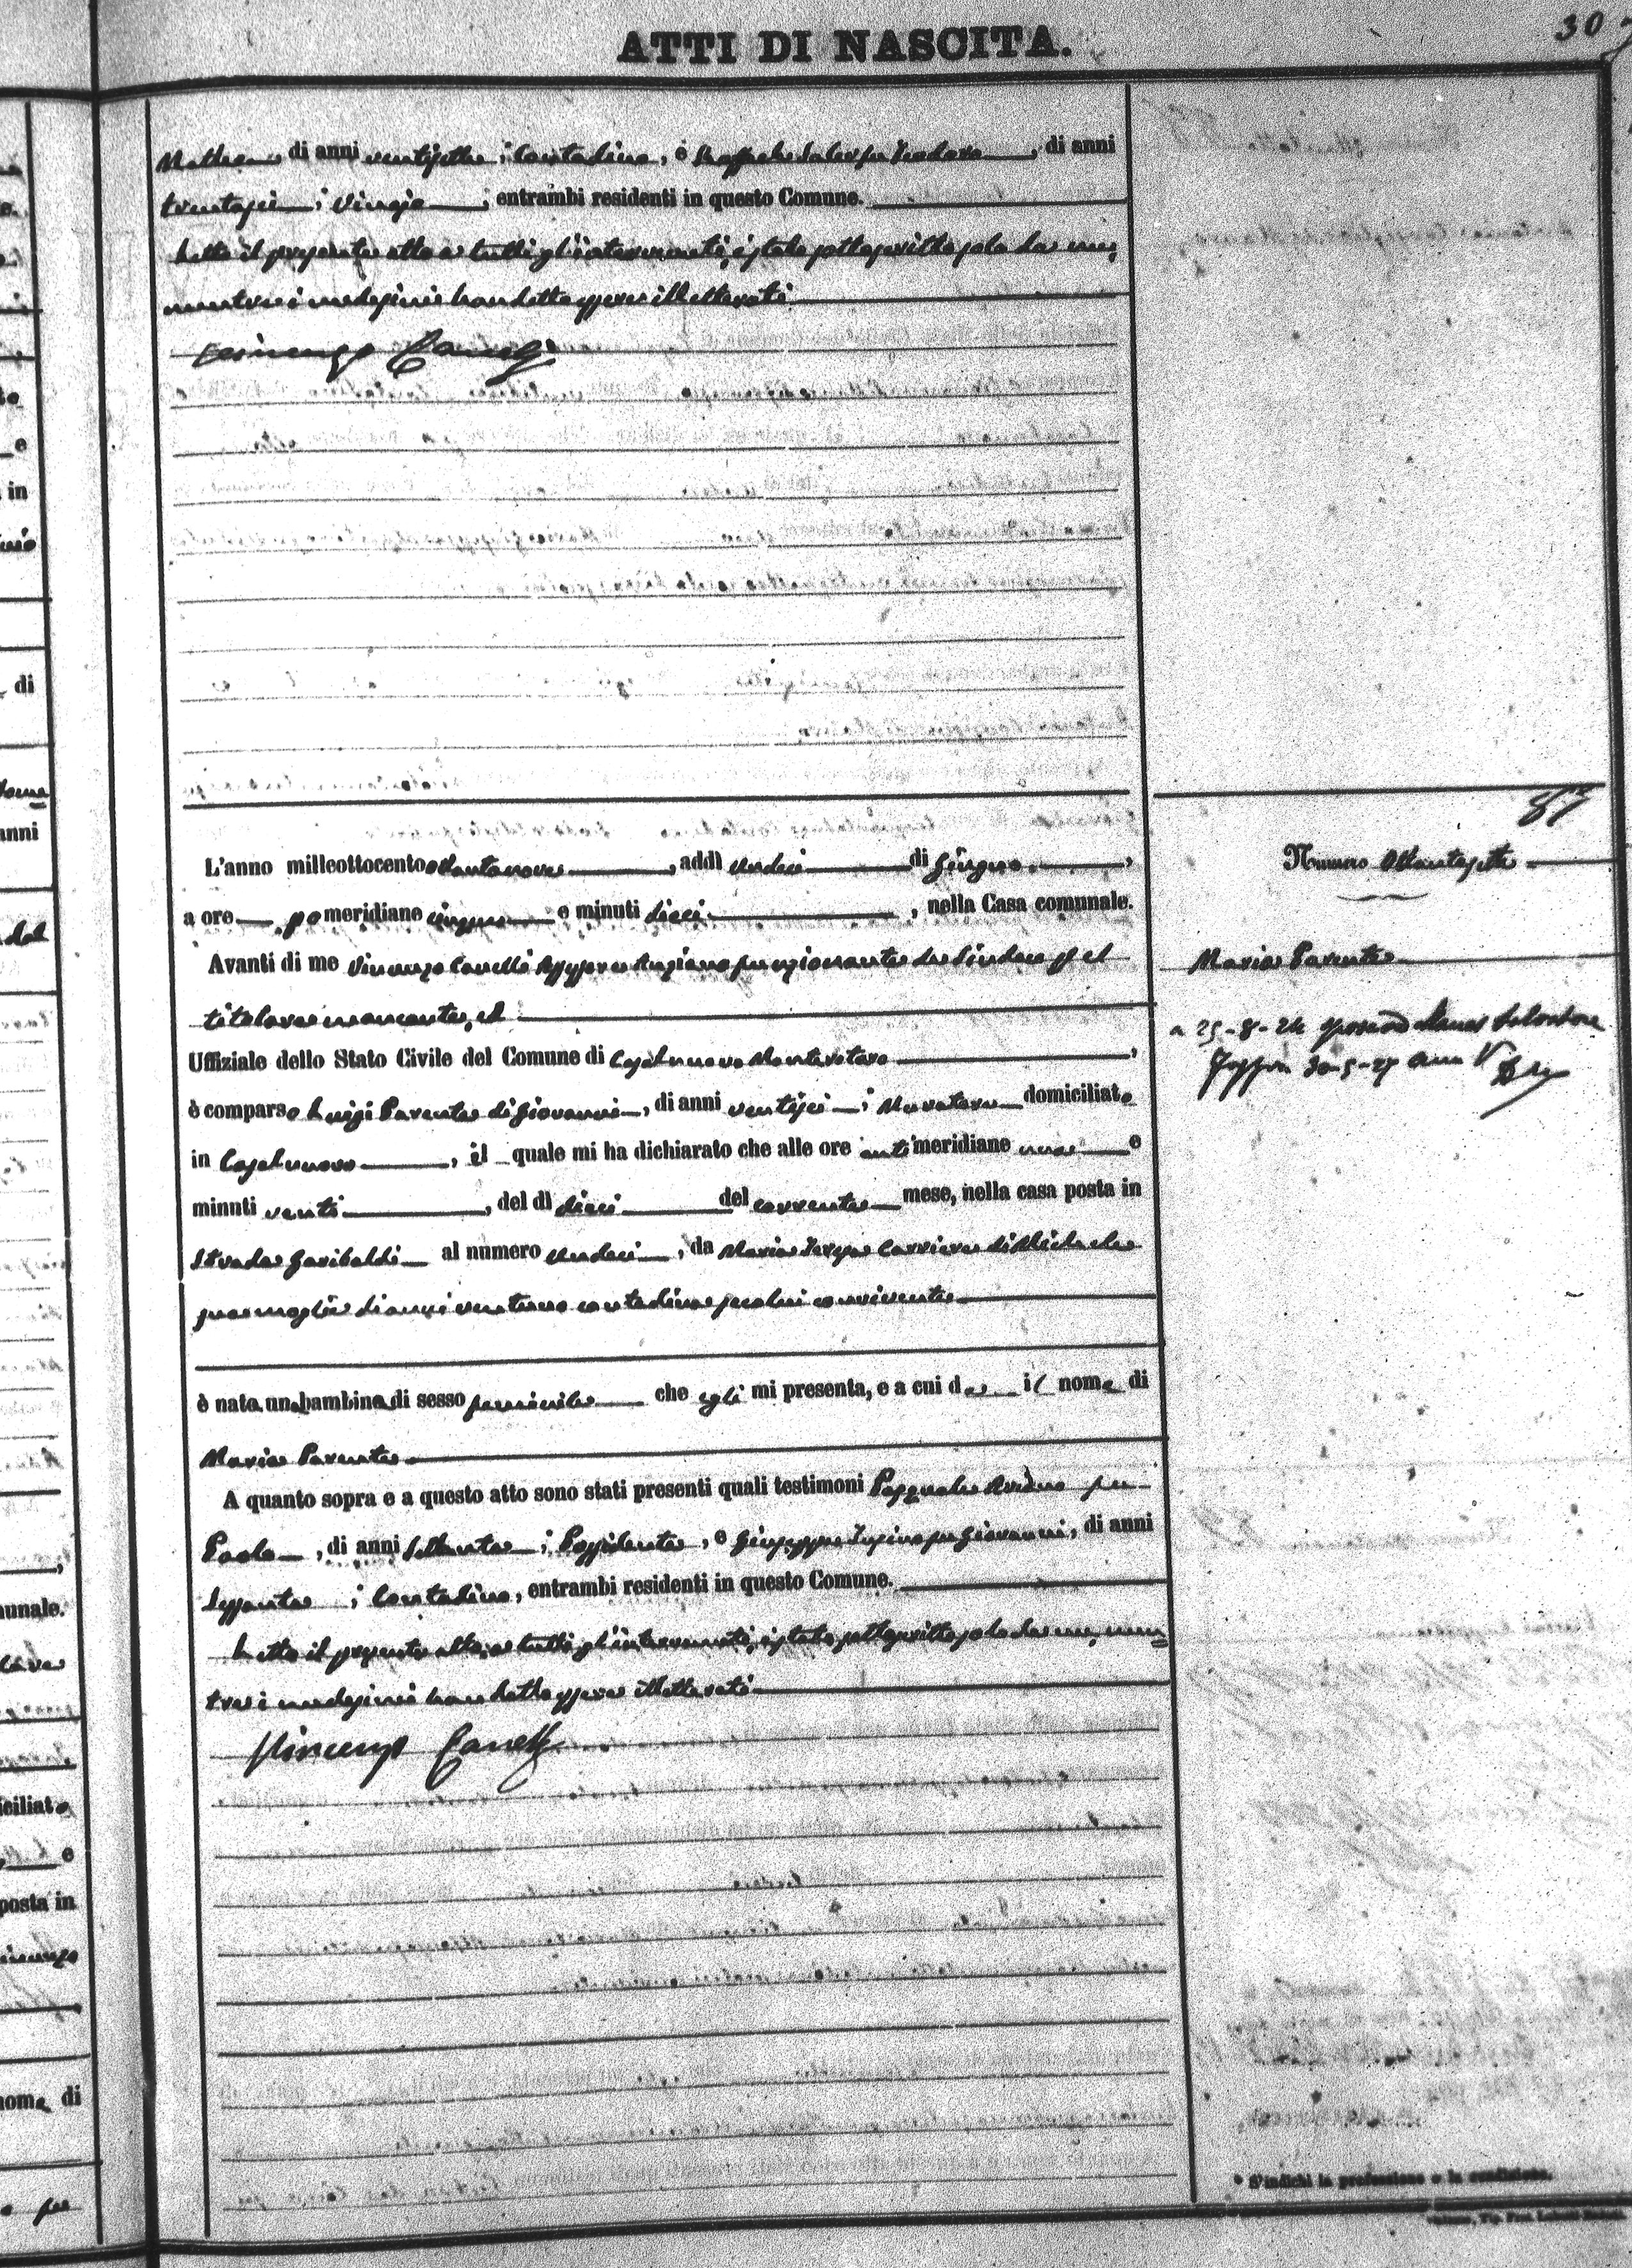 ATTI DI NASCITA.
30
Matteo di anni ventisette; Contadino, e Raffaele Salerfu Teodoro, di anni
trentasei; Vinajo; entrambi residenti in questo Comune.
Letto il presente atto a tutti gl'intervenuti, è stato sottoscritto solo da me,
mentre i medesimi han detto essere illetterati
Vincenzo Canelli
L'anno milleottocentottantanove, addì undici di Giugno,
a ore pomeridiane cinque e minuti dieci, nella Casa comunale.
Avanti di me Vincenzo Canelli Assessore Anziano funzionante da Sindaco pel
titolare mancante, ed
Uffiziale dello Stato Civile del Comune di Casalnuovo Monterotaro,
è comparso Luigi Parente di Giovanni, di anni ventisei; Muratore domiciliato
in Casalnuovo, il quale mi ha dichiarato che alle ore antimeridiane una e
minuti venti, del dì dieci del corrente mese, nella casa posta in
Strada Garibaldi al numero undici, da Maria Teresa Carriera di Michele
sua moglie di anni ventuno contadina seco lui convivente
è nata una bambina di sesso feminile che egli mi presenta, e a cui da il nome di
Maria Parente
A quanto sopra e a questo atto sono stati presenti quali testimoni Pasquale fu
Paolo, di anni settanta; Possidente, e Giuseppe fu Giovanni, di anni
sessanta; Contadino, entrambi residenti in questo Comune.
Letto il presente atto, a tutti gl'intervenuti, è stato sottoscritto solo da me, men=
tre i medesimi han detto essere illetterati
Vincenzo Canelli
87
Numero Ottantasette
Maria Parente
a 25-8-24 sposò Salvatore
Foggia 30-5-27 anno V
* S'indichi la professione o la condizione.